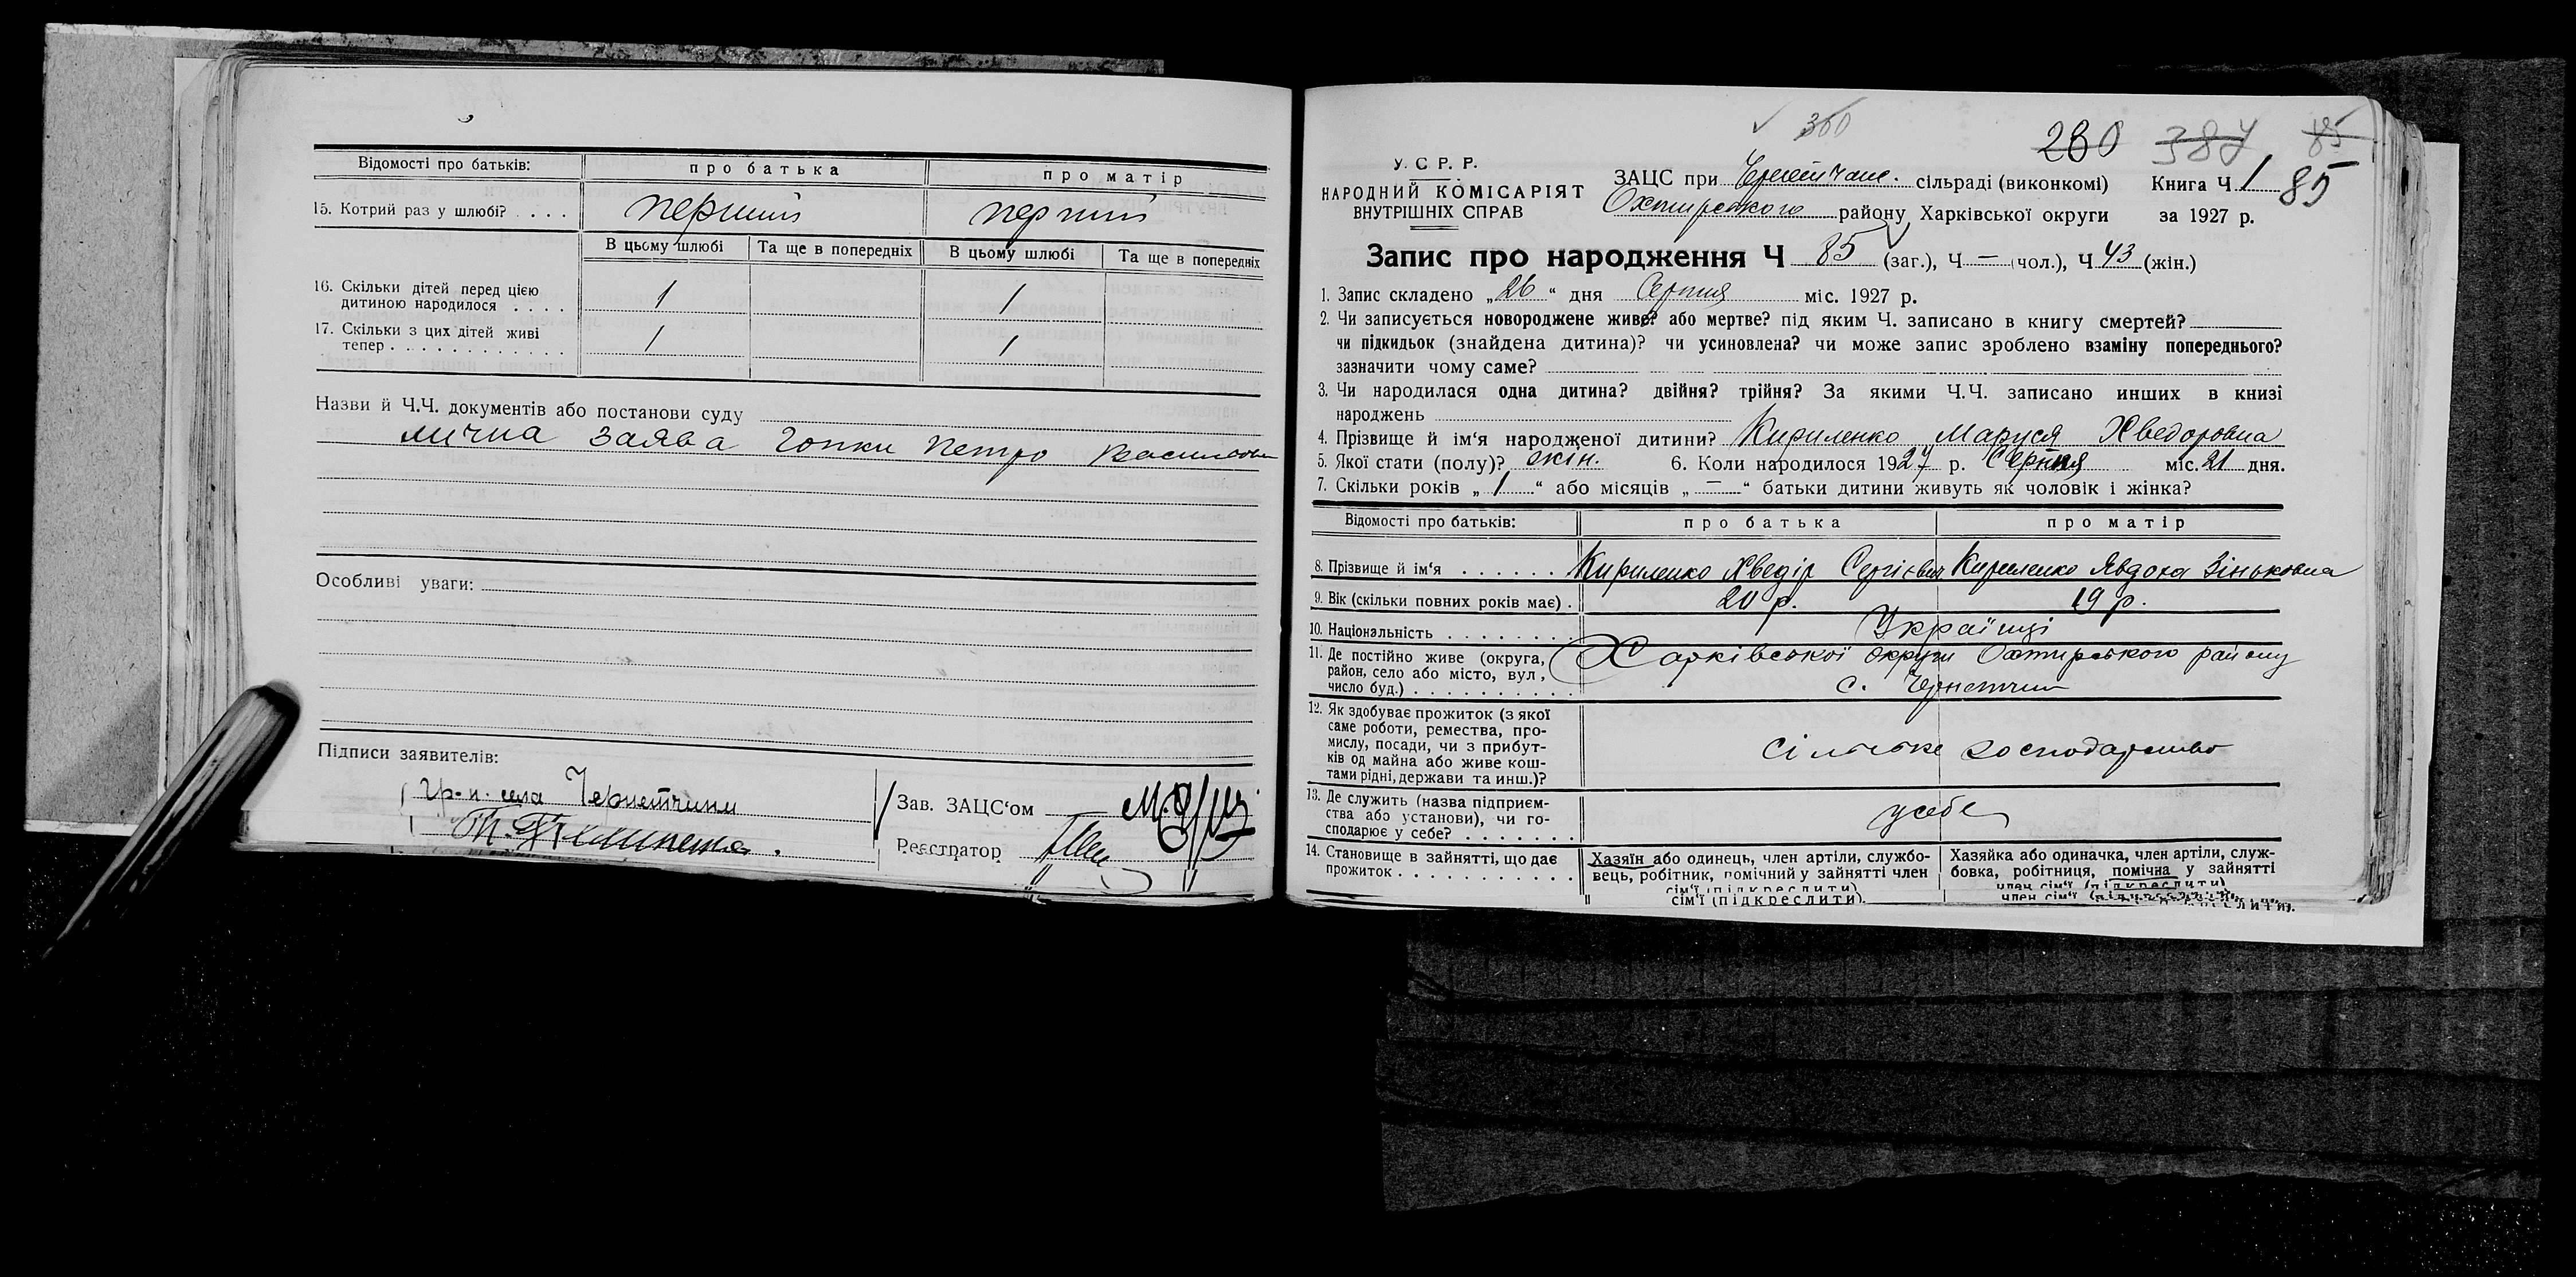 Відомості про батьків: про батька про матір
15. Котрий раз у шлюбі? . . . . перший перший
В цьому шлюбі Та ще в попередніх В цьому шлюбі Та ще в попередніх
16. Скільки дітей перед цією
дитиною народилося . . . . 1 1
17. Скільки з цих дітей живі
тепер . . . . . . . . . . . . 1 1
Назви й Ч.Ч. документів або постанови суду
лична заява Гопки Петро Васильови
Особливі уваги:
Підписи заявителів:
Гр-н. села Чернетчини
Зав. ЗАЦС‘ом
Реєстратор
360
280 387 85
У. С. Р. Р.
НАРОДНИЙ КОМІСАРІЯТ
ВНУТРІШНІХ СПРАВ
ЗАЦС при Чернетчанс. сільраді (виконкомі) Книга Ч 1 85
Охтирського району, Харківської округи за 1927 р.
Запис про народження Ч 85 (заг.), Ч — (чол.), Ч 43 (жін.)
1. Запис складено „26“ дня Серпня міс. 1927 р.
2. Чи записується новороджене живе? або мертве? під яким Ч. записано в книгу смертей?
чи підкидьок (знайдена дитина)? чи усиновлена? чи може запис зроблено взаміну попереднього?
зазначити чому саме?
3. Чи народилася одна дитина? двійня? трійня? За якими Ч.Ч. записано инших в книзі
народжень
4. Прізвище й ім‘я народженої дитини? Кириленко Маруся Хведоровна
5. Якої стати (полу)? жін. 6. Коли народилося 1927 р. Серпня міс. 21 дня.
7. Скільки років „1“ або місяців „—“ батьки дитини живуть як чоловік і жінка?
Відомості про батьків: про батька про матір
8. Прізвище й ім‘я . . . . . . Кириленко Хведір Сергієвич Кириленко Явдоха Зіньковна
9. Вік (скільки повних років має) . 20 р. 19 р.
10. Національність . . . . . . . . Українці
11. Де постійно живе (округа, Харківської округи Охтирського району
район, село або місто, вул.,
число буд.) . . . . . . . . . . . с. Чернетчин
12. Як здобуває прожиток (з якої
саме роботи, ремества, про-
мислу, посади, чи з прибут-
ків од майна або живе кош-
тами рідні, держави та инш.)? сільське господарство
13. Де служить (назва підприєм-
ства або установи), чи го-
сподарює у себе? . . . . . . . усебе
14. Становище в зайнятті, що дає
прожиток . . . . . . . . . . . .
Хазяїн або одинець, член артілі, службо-
вець, робітник, помічний у зайнятті член
сім‘ї (підкреслити)
сім‘ї (підкреслити).
Хазяйка або одиначка, член артілі, служ-
бовка, робітниця, помічна у зайнятті
член сім‘ї (підкреслити)